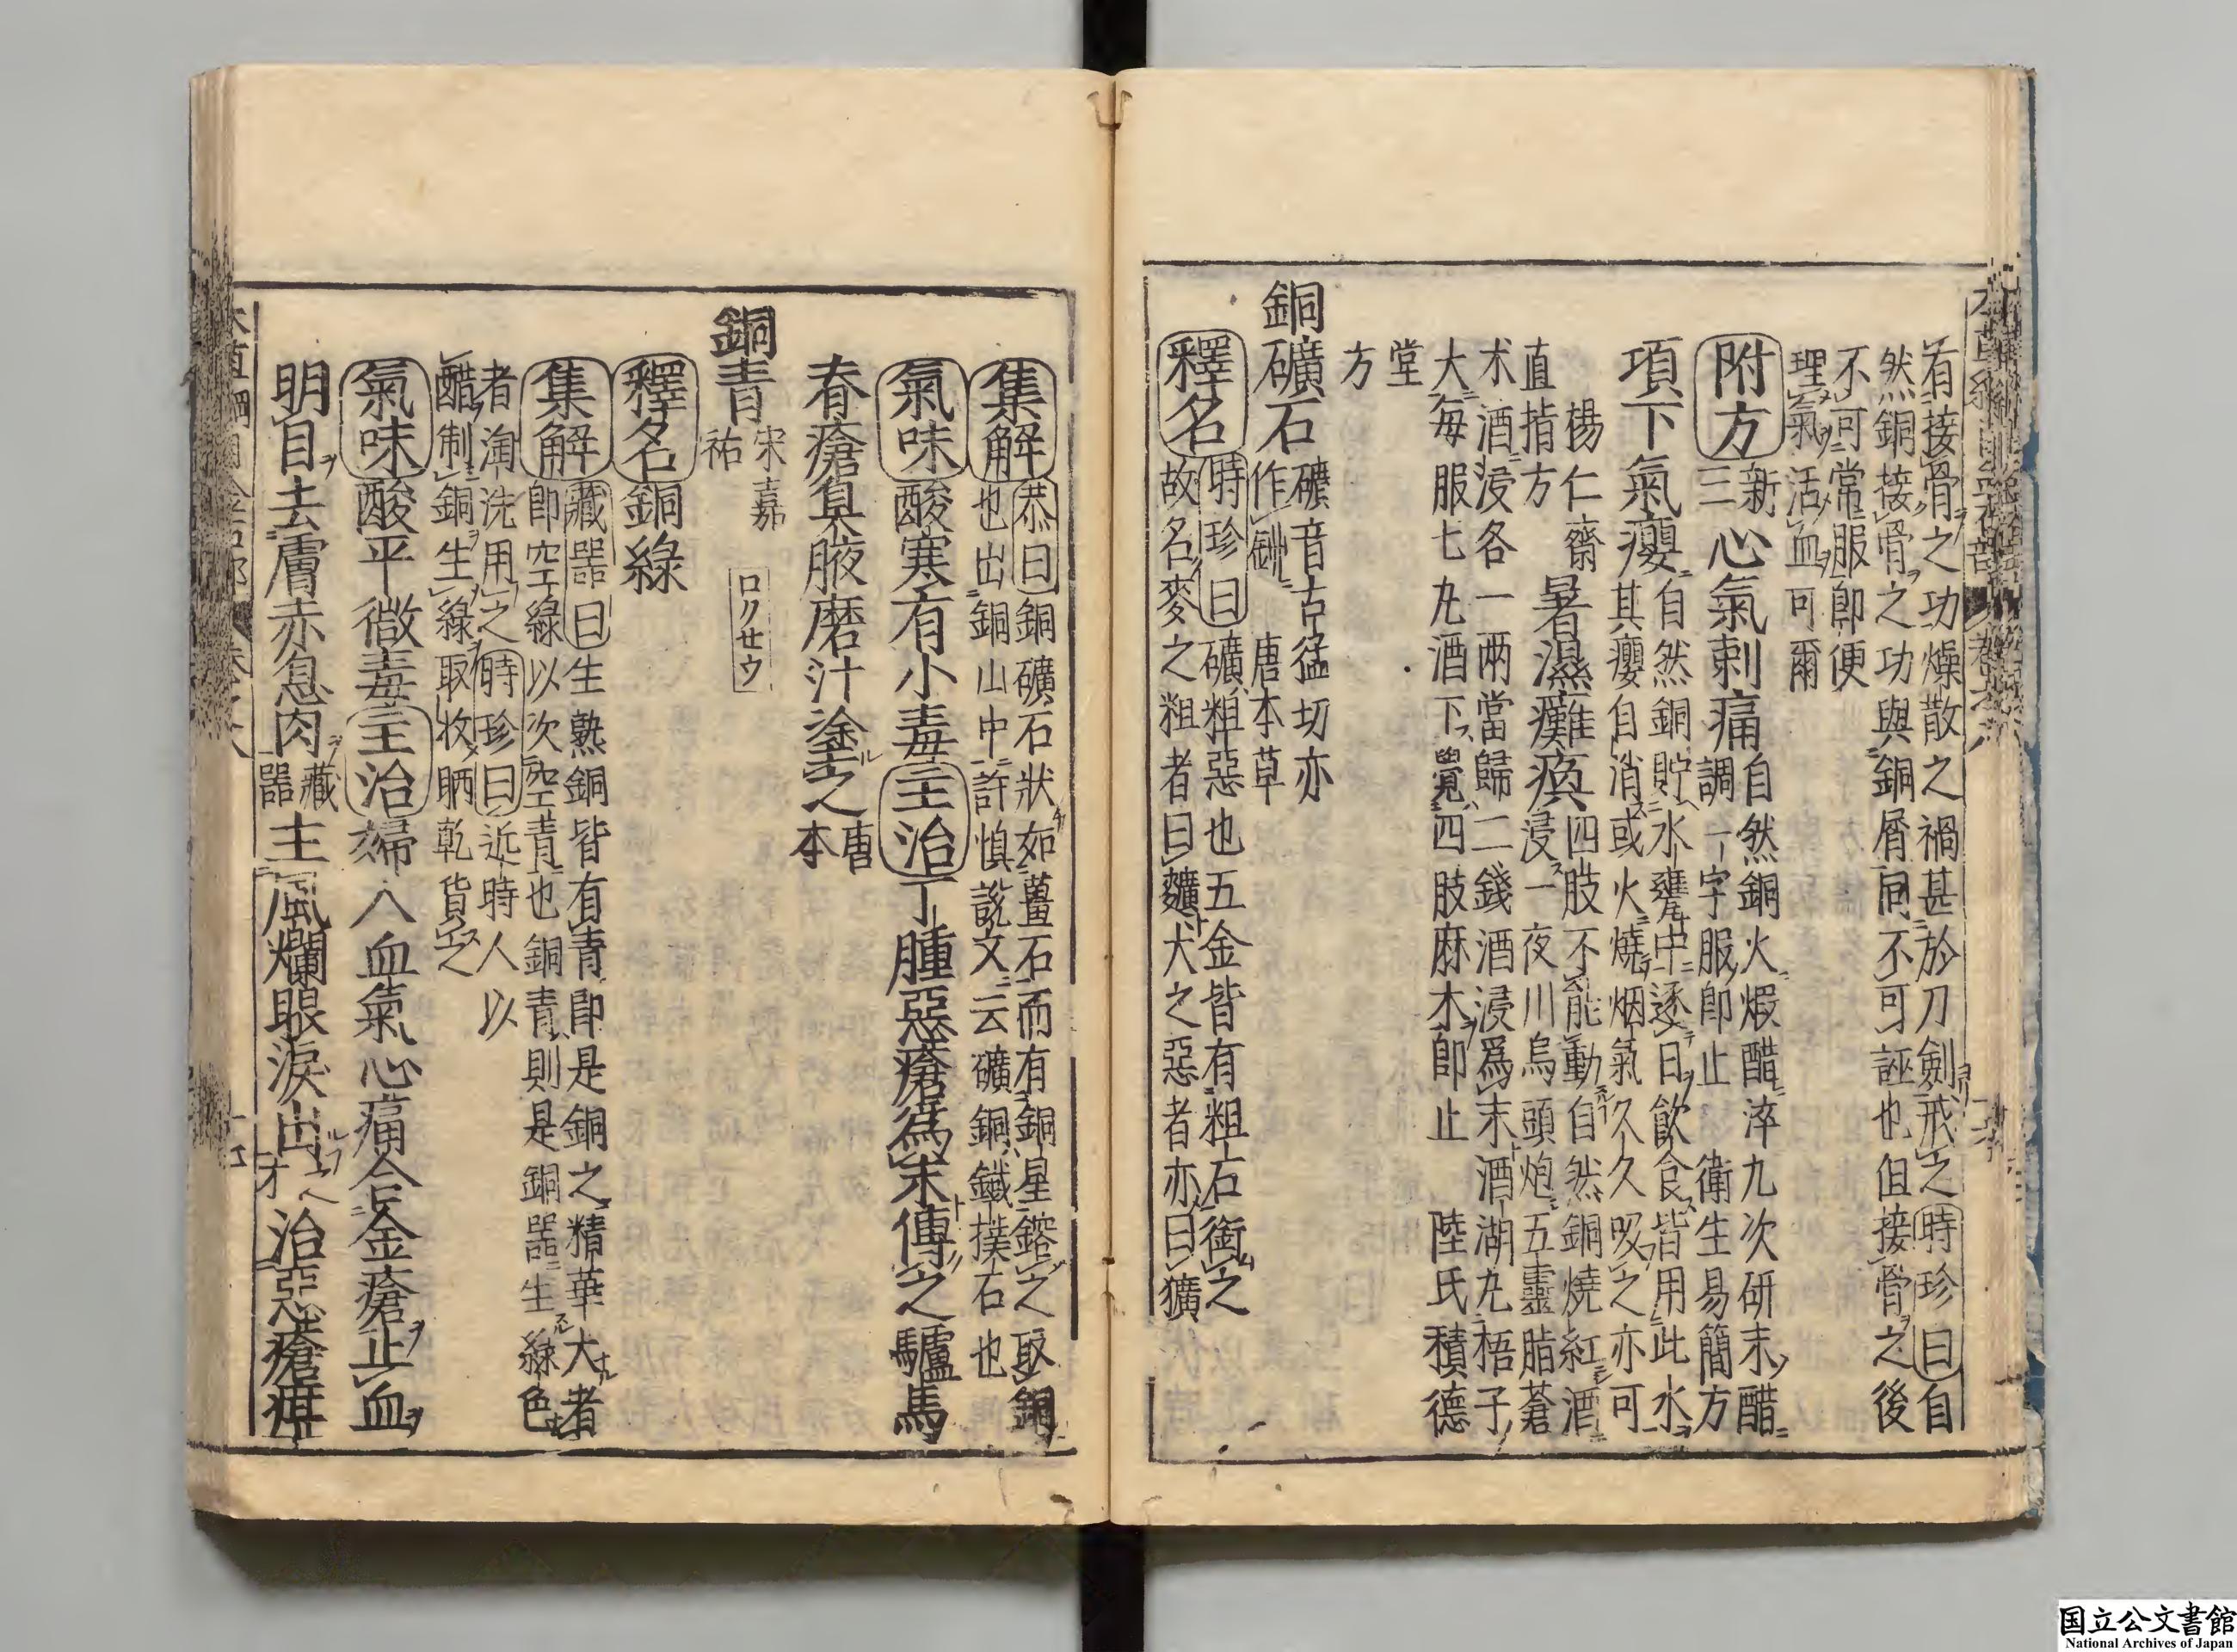 有接骨之功燥散之禍甚於刀劍戒之時珍曰自
然銅接骨之功與銅屑同不可誣也但接骨之後
不可常服即便
理氣活血可爾
附方
新
三
心氣刺痛
自然銅火煅醋淬九次研末醋
調一字服即止 衛生易簡方
項下氣癭
自然銅貯水甕中逐日飲食皆用此水
其癭自消或火燒烟氣久久吸之亦可
楊仁齋
直指方
暑濕癱瘓
四肢不能動自然銅燒紅酒
浸一夜川烏頭炮五靈脂蒼
术酒浸各一兩當歸二錢酒浸為末酒湖丸梧子
大每服七丸酒下覺四肢麻木即止 陸氏積德
堂
方
銅礦石
礦音古猛切亦
作鉚 唐本草
釋名
時珍曰礦粗惡也五金皆有粗石銜之
故名麥之粗者曰䵃犬之惡者亦曰獷
集解
恭曰銅礦石狀如薑石而有銅星鎔之取銅
也出銅山中許慎說文云礦銅鐵撲石也
氣味酸寒有小毒主治丁腫惡瘡為末傅之驢馬
脊瘡臭腋磨汁塗之
唐
本
銅青
宋嘉
祐
ロクセウ
釋名銅綠
集解
藏器曰生熟銅皆有青即是銅之精華大者
即空綠以次空青也銅青則是銅器生綠色
者淘洗用之時珍曰近時人以
醋制銅生綠取收晒乾貨之
氣味酸平微毒主治婦人血氣心痛合金瘡止血
明目去膚赤息肉
藏
器
主風爛眼淚出
之
才
治惡瘡疳
国立公文書館
National Archives of Japan